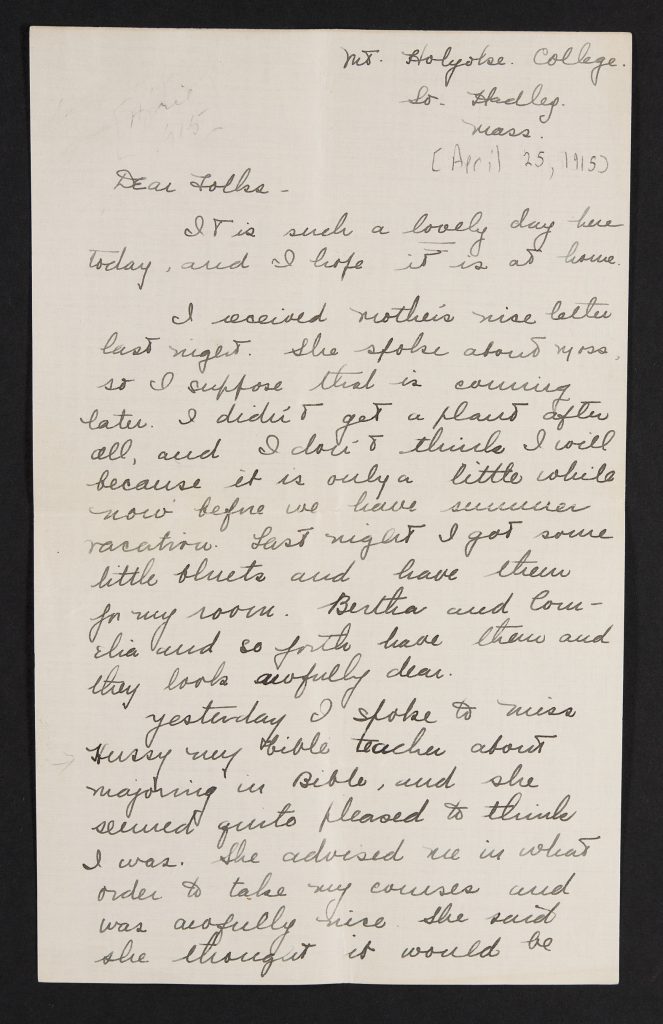 Mt. Holyoke. College.
So. Hadley.
Mass.
[April 25, 1915)
[April
Dear Folks -
It is such a lovely day here
today, and I hope it is at home.
I received mother's nise letter
last night. She spoke about moss,
so I suppose that is coming
later. I didn't get a plant after
all, and I don't think I will
because it is only a little while
now before we have summer
vacation. Last night I got some
little bluets and have them
for my room. Bertha and Corn-
elia and so forth have them and
they look awfully dear.
Yesterday I spoke to Miss
Hussy my bible teacher about
majoring in Bible, and she
seemed quite pleased to think
I was. She advised me in what
order to take my courses and
was awfully nise. She said
she thought it would be